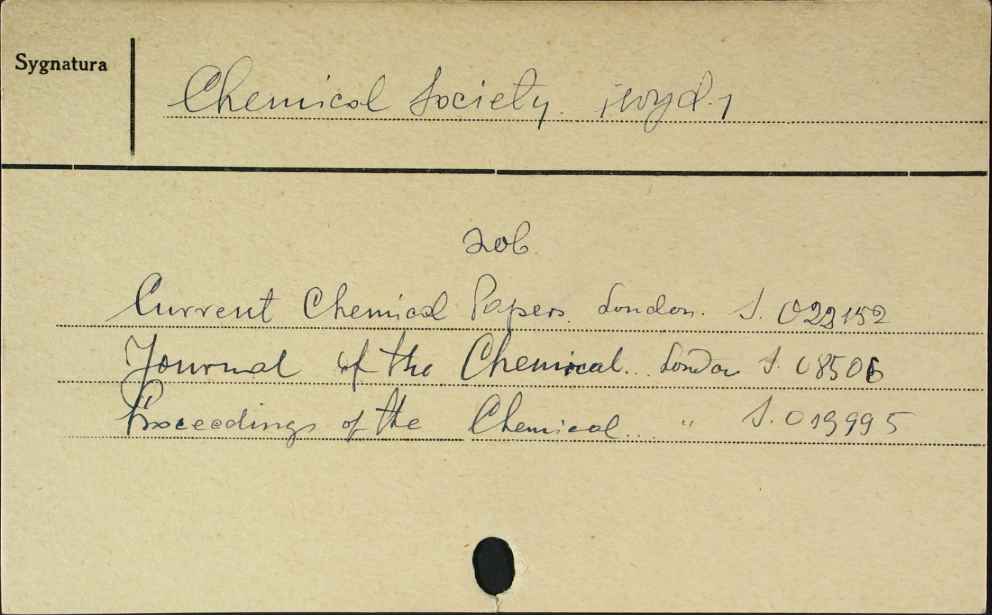 Sygnatura
Chemical Society. /wyd./
zob.
Current Chemical Papers. London. S. 022152
Journal of the Chemical... London S. 08506
Proceedings of the Chemical... " S. 019995